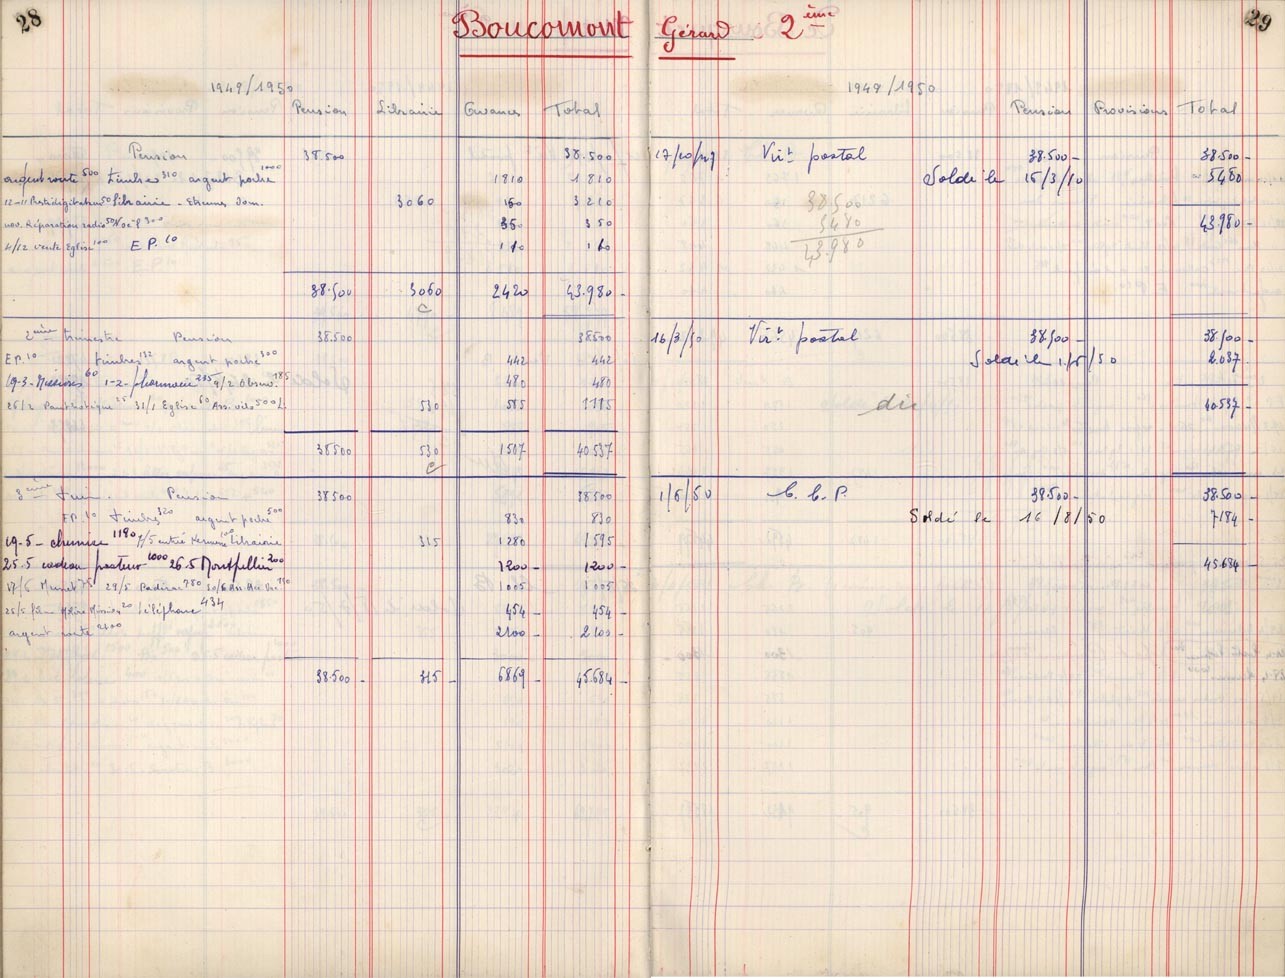 28
Boucomont Gérard 2ème
29
1949/1950
Pension Librairie Avances Total
Pension 38.500 38.500
argent route 500 timbres 310 argent poche 1000 1810 1810
12-11 Prestidigitateur 50 librairie - Etrennes dom. 3060 150 3210
nov. Réparation radio 50 Noël 300 350 350
4/12 vente Eglise 100 E.P. 10 110 110
38.500 3060 2420 43.980 -
c
2ème trimestre Pension 38.500 38500
E.P. 10 timbres 132 argent poche 300 442 442
19-3- Missions 60 1-2- pharmacie 235 4/2 Observ. 185 480 480
26/2 25 31/1 Eglise 60 Ass. vélo 500 L. 530 585 1115
38500 530 1507 40537
c
3ème trim. Pension 38500 38500
E.P. 10 timbres 320 argent poche 500 830 830
19-5- chemise 1180 100 librairie 315 1280 1595
25.5 cadeau pasteur 1000 26.5 Montpellier 200 1200 - 1200 -
17/6 75 29/5 Padirac 780 150 1005 1005
20 téléphone 434 454 - 454 -
argent route 2100 2100 - 2100 -
38.500 - 315 - 6869 - 45.684 -
1949/1950
Pension Provisions Total
17/10/49 Virt postal 38.500 - 38.500 -
Soldé le 16/3/50 5480
43.980 -
38500
5480
43.980
16/3/50 Virt postal 38.500 - 38.500 -
Soldé le 1/5/50 2.037
40537 -
du
1/5/50 C. C. P. 38.500 - 38.500 -
Soldé le 16/8/50 7184 -
45684 -